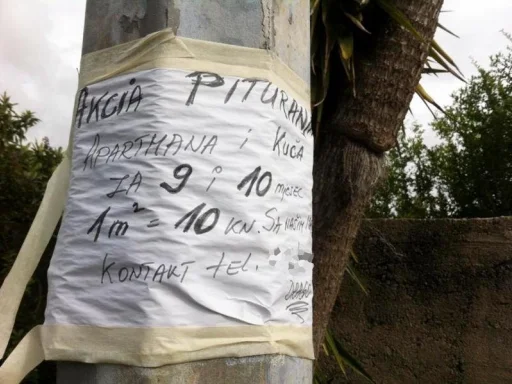 AKCIA PITURANJA
APARTMANA i KUĆA
ZA 9 i 10 mjesec
1m² = 10 KN. SA
KONTAKT tel.